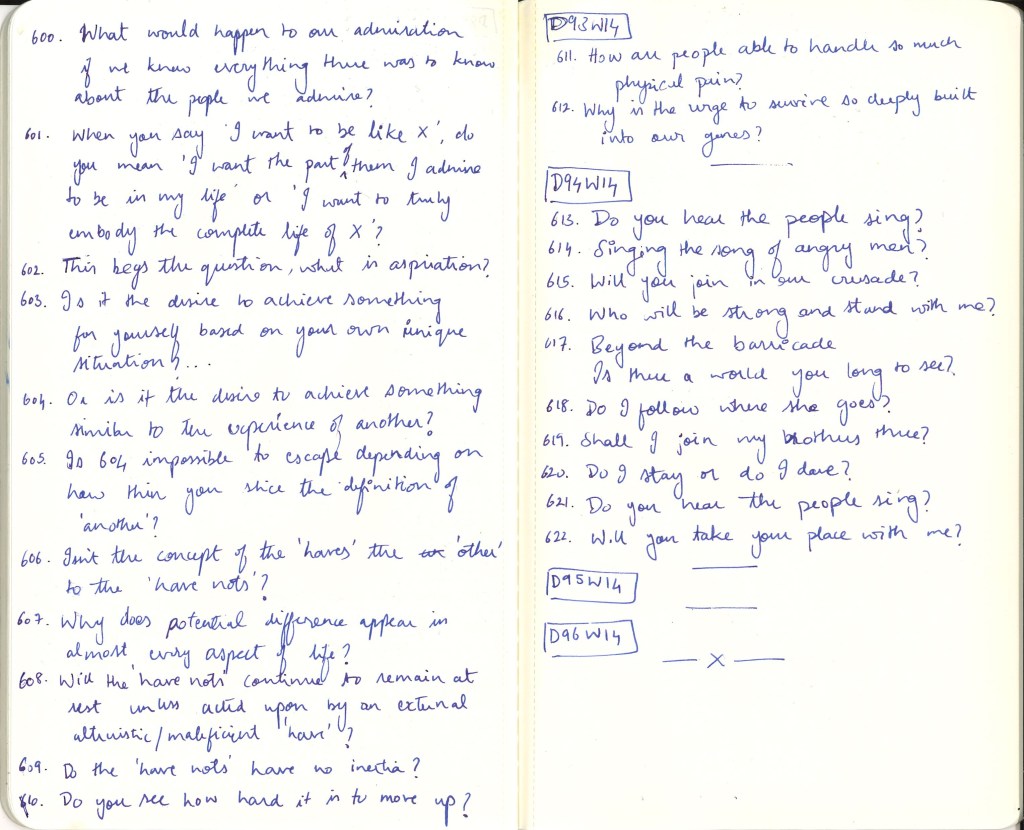 600. What would happen to our admiration
if we knew everything there was to know
about the people we admire?
601. When you say 'I want to be like X', do
you mean 'I want the part of them I admire
to be in my life' or 'I want to truly
embody the complete life of X'?
602. This begs the question, what is aspiration?
603. Is it the desire to achieve something
for yourself based on your own unique
situation?...
604. Or is it the desire to achieve something
similar to the experience of another?
605. Is 604 impossible to escape depending on
how thin you slice the definition of
'another'?
606. Isn't the concept of the 'haves' the 'other'
to the 'have nots'?
607. Why does potential difference appear in
almost every aspect of life?
608. Will the 'have nots' continue to remain at
rest unless acted upon by an external
altruistic/maleficient 'have'?
609. Do the 'have nots' have no inertia?
610. Do you see how hard it is to move up?
D93W14
611. How are people able to handle so much
physical pain?
612. Why is the urge to survive so deeply built
into our genes?
D94W14
613. Do you hear the people sing?
614. Singing the song of angry men?
615. Will you join in our crusade?
616. Who will be strong and stand with me?
617. Beyond the barricade
Is there a world you long to see?
618. Do I follow where she goes?
619. Shall I join my brothers there?
620. Do I stay or do I dare?
621. Do you hear the people sing?
622. Will you take your place with me?
D95W14
D96W14
X